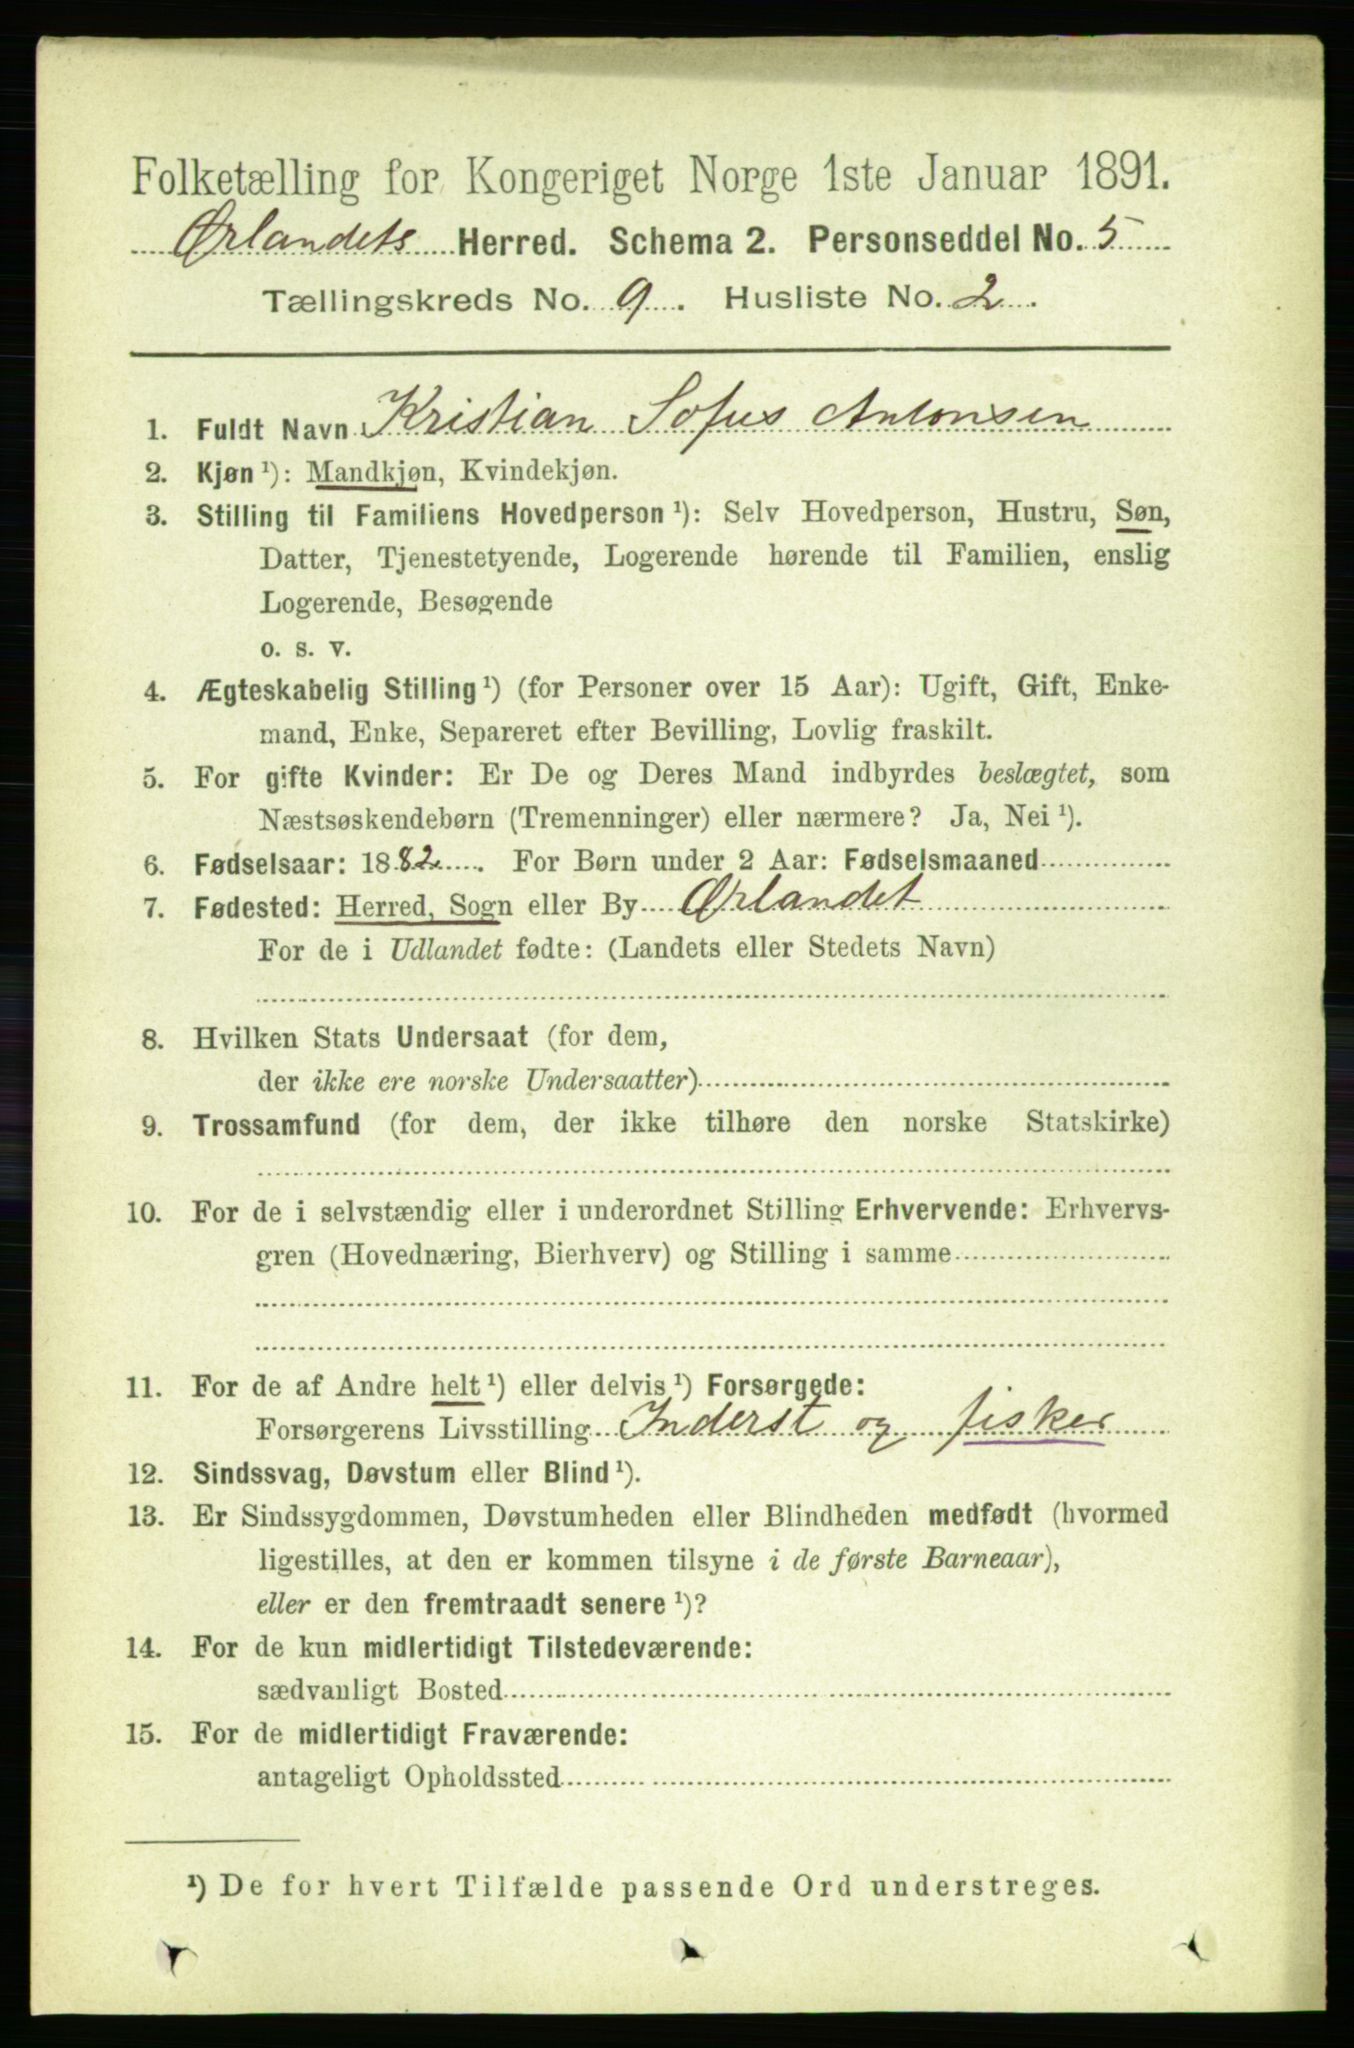 Folketælling for Kongeriget Norge 1ste Januar 1891.
Ørlandets Herred. Schema 2. Personseddel No. 5
Tællingskreds No. 9. Husliste No. 2.
1. Fuldt Navn Kristian Sofus Antonsen
2. Kjøn ¹): Mandkjøn, Kvindekjøn.
3. Stilling til Familiens Hovedperson ¹): Selv Hovedperson, Hustru, Søn,
Datter, Tjenestetyende, Logerende hørende til Familien, enslig
Logerende, Besøgende
o. s. v.
4. Ægteskabelig Stilling ¹) (for Personer over 15 Aar): Ugift, Gift, Enke-
mand, Enke, Separeret efter Bevilling, Lovlig fraskilt.
5. For gifte Kvinder: Er De og Deres Mand indbyrdes beslægtet, som
Næstsøskendebørn (Tremenninger) eller nærmere? Ja, Nei ¹).
6. Fødselsaar: 1882. For Børn under 2 Aar: Fødselsmaaned
7. Fødested: Herred, Sogn eller By Ørlandet
For de i Udlandet fødte: (Landets eller Stedets Navn)
8. Hvilken Stats Undersaat (for dem,
der ikke ere norske Undersaatter)
9. Trossamfund (for dem, der ikke tilhøre den norske Statskirke)
10. For de i selvstændig eller i underordnet Stilling Erhvervende: Erhvervs-
gren (Hovednæring, Bierhverv) og Stilling i samme
11. For de af Andre helt ¹) eller delvis ¹) Forsørgede:
Forsørgerens Livsstilling Inderst og fisker
12. Sindssvag, Døvstum eller Blind ¹).
13. Er Sindssygdommen, Døvstumheden eller Blindheden medfødt (hvormed
ligestilles, at den er kommen tilsyne i de første Barneaar),
eller er den fremtraadt senere ¹)?
14. For de kun midlertidigt Tilstedeværende:
sædvanligt Bosted
15. For de midlertidigt Fraværende:
antageligt Opholdssted
¹) De for hvert Tilfælde passende Ord understreges.